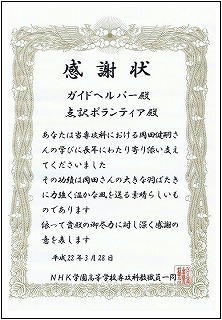 感謝状
ガイドヘルパー殿
点訳ボランティア殿
あなたは当専攻科における岡田健嗣さ
んの学びに長年にわたり寄り添い支え
てくださいました
その功績は岡田さんの大きな羽ばたき
に力強く温かな風を送る素晴らしいも
のであります
依って貴殿の御尽力に対し深く感謝の
意を表します
平成22年3月28日
NHK学園高等学校専攻科教職員一同